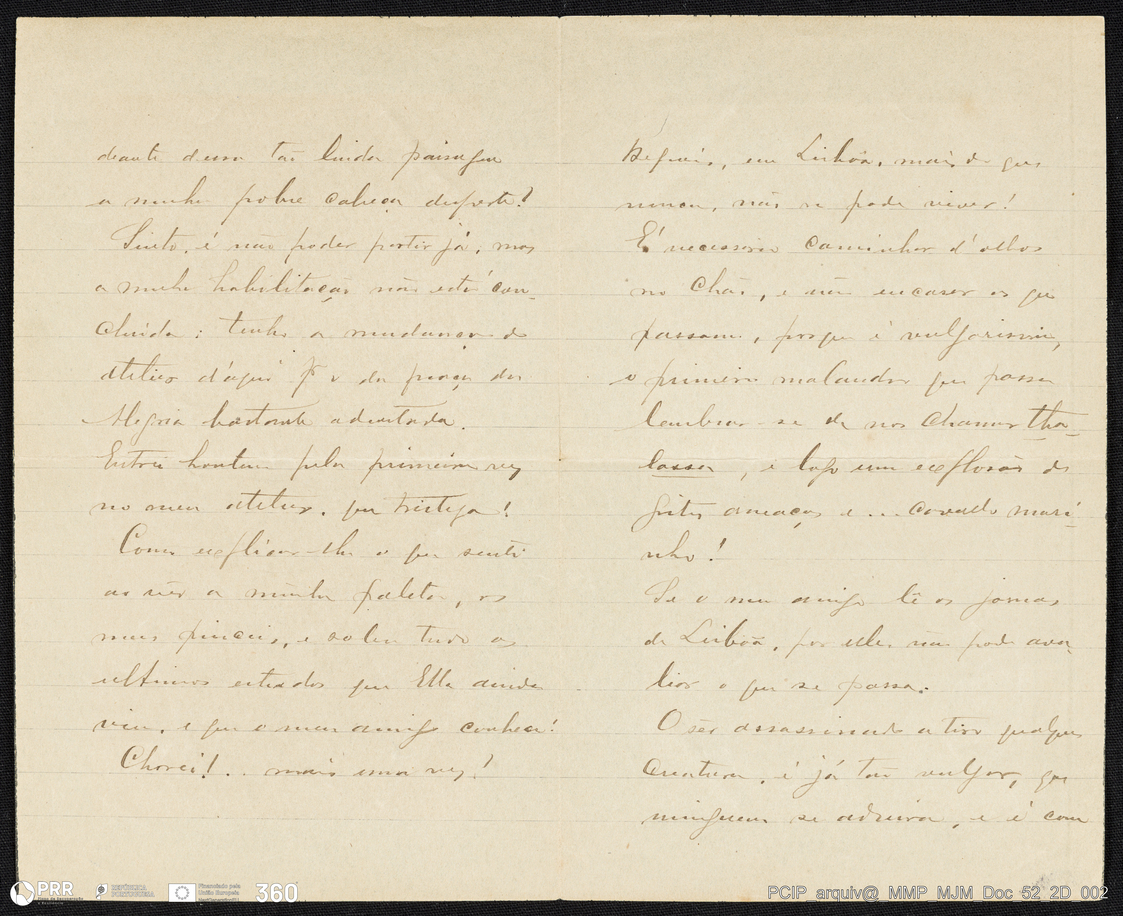 deante dessa tão linda paisagem
a minha pobre cabeça desperte!
Sinto, é não poder partir já; mas
a minha habilitação não está con-
cluida: tenho a mudança do
atelier d'aqui pª o da praça da
Alegria bastante adeantada.
Entrei hontem pela primeira vez
no meu atelier, que tristeza!
Como explicar-lhe o que senti
ao vêr a minha paleta, os
meus pinceis, e sobre tudo os
ultimos estudos que Ella ainda
viu, e que o meu amigo conhece!
Chorei!.. mais uma vez!
Depois, em Lisbôa, mais do que
nunca, não se pode viver!
É necessario caminhar d'olhos
no chão, e não encarar os que
passam, porque é vulgarissimo,
o primeiro malandro que passa
lembrar-se de nos chamar tha-
lassa, e logo uma explosão de
gritos ameaças e... cavallo mari-
nho!
Se o meu amigo lê os jornaes
de Lisbôa, por elles não pode ava-
liar o que se passa.
O sêr assassinado a tiro qualquer
creatura, é já tão vulgar, que
ninguem se admira, e é com
PRR
REPÚBLICA PORTUGUESA
Financiado pela
União Europeia
NextGenerationEU
360
PCIP_arquiv@_MMP_MJM_Doc_52_2D_002